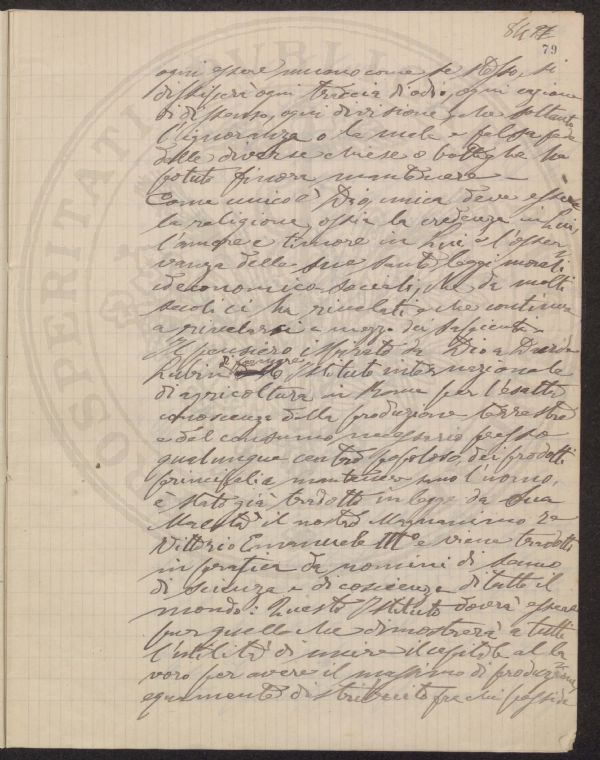 84 87
79
ogni essere umano come se stesso, si
dissiperà ogni traccia d'odio, ogni cagione
di dissenso, ogni divisione, che soltanto
l'ignoranza o la mala e falsa fede
delle diverse chiese o botteghe ha
potuto finora mantenere.
Come unico è Dio, unica deve essere
la religione, ossia la credenza in Lui,
l'amore e timore in Lui e l'osser
vanza delle sue sante leggi morali
ed economico-sociali, che da molti
secoli ci ha rivelati e che continua
a rivelarsi a mezzo dei sapienti.
Il pensiero ispirato da Dio a David
Lubin di formare Istituto internazionale
di agricoltura in Roma per l'esatta
conoscenza della produzione terrestre
e del consumo necessario presso
qualunque centro popoloso, dei prodotti
principali a mantenere sano l'uomo,
è stato già tradotto in legge da Sua
Maestà il nostro Magnanimo Re
Vittorio Emanuele III° e viene tradotto
in pratica da uomini di senno
di scienza e di coscienza di tutto il
mondo: Questo Istituto dovrà essere
per quello che dimostrerà a tutti
l'utilità di unire il capitale al la
voro per avere il massimo di produzione
equamente distribuito fra chi possie